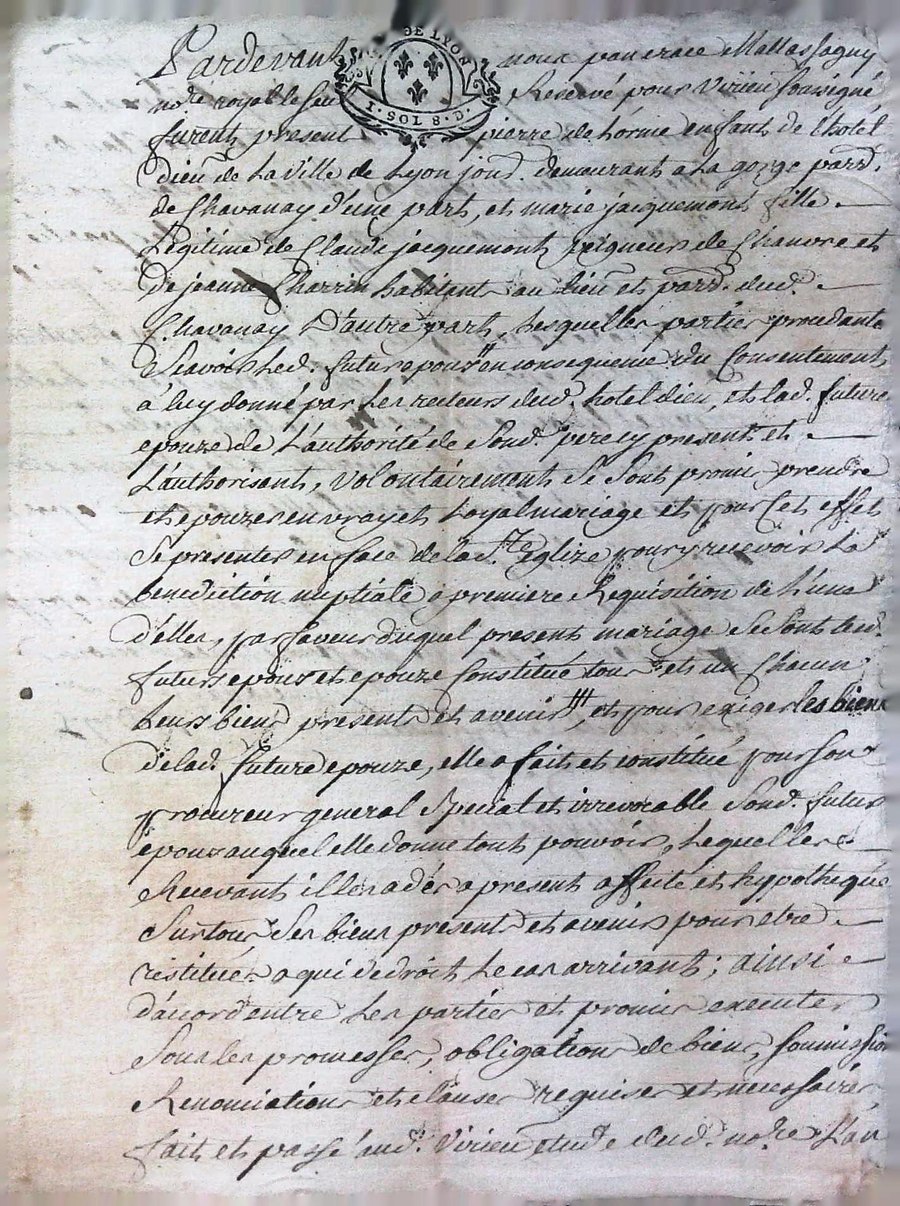 Pardevant nous pancrace Mattassagny
DE LYON
no.re royal le seul Reservé pour Virieu soussigné
I · SOL · 8 · D ·
furent present pierre de Lorme enfant de l'hotel
dieu de la Ville de Lyon jond. demeurant a La gorge parr.
de Chavanay d'une part, et marie jacquemont fille
Legitime de Claude jacquemont peigneur de Chanvre et
De jeanne Charrin habitants au Lieu et parr. dud.
Chavanay D'autre part, Lesquelles parties procedantes
Scavoir Led. futur epoux en consequence du Consentement
a luy donné par Les recteurs dud. hotel dieu, et lad. future
epouze de L'authorité de Sond. pere cy present et
L'authorisant, volontairement Se Sont promis prendre
et epouzer en vray et Loyal mariage et pour Cet effet
Se presenter en face de la S.te Eglize pour y recevoir La
benediction nuptiale a premiere Requisition de L'une
d'elles, par faveur duquel present mariage Se Sont Led.
futurs epoux et epouze Constitué tous et un Chacun
Leurs biens presents et avenir, et pour exiger les biens
de lad. future epouze, elle a fait et constitué pour Son
procureur general Special et irrevocable Sond. futur
epoux auquel elle donne tout pouvoir, Lequel les
Recevant il les a dés a present affecté et hypothequé
Sur tous Ses biens presents et avenir pour etre
restitués a qui de droit Le cas arrivant; ainsi
d'accord entre Les parties et promis executer
Sous les promesses, obligations de biens, Soumissions
Renonciations et clauses requises et necessaires
fait et passé aud. Virieu etude dud. no.re L'an